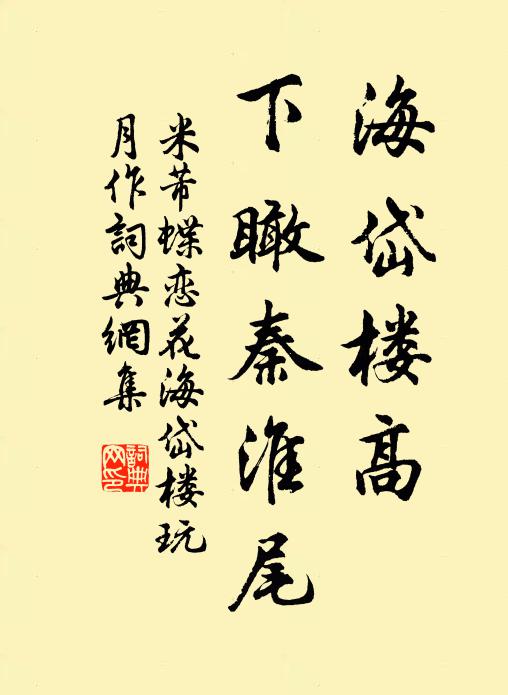 海岱楼高
下瞰秦淮尾
米芾蝶恋花海岱楼玩
月作詞典網集
詞典网印